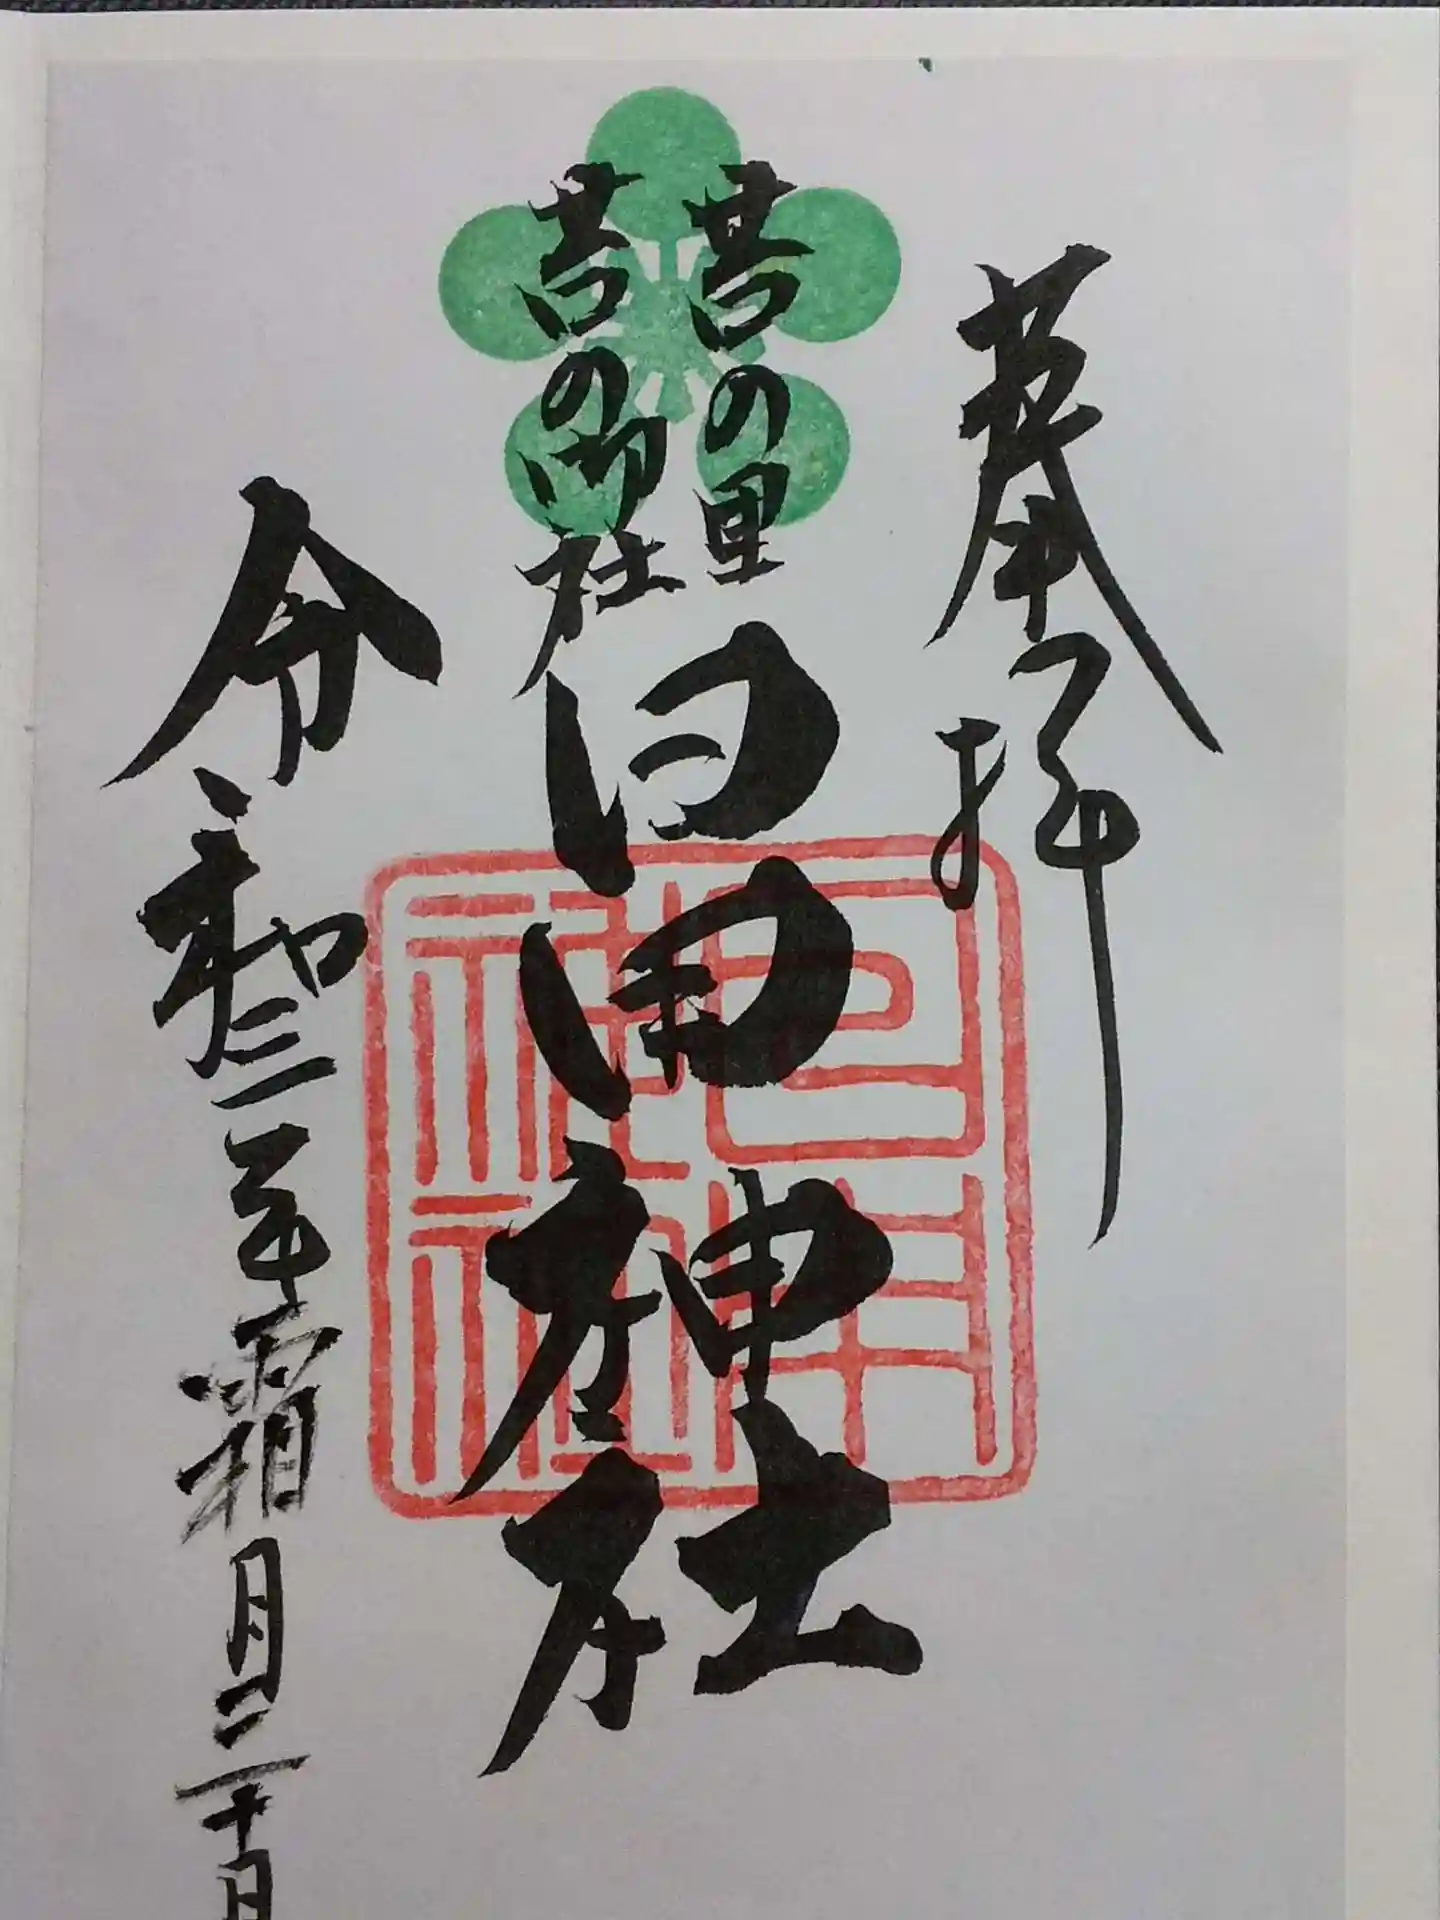 奉拝
苔の里
苔の御社
日用神社
日用神社
令和三年霜月三十日